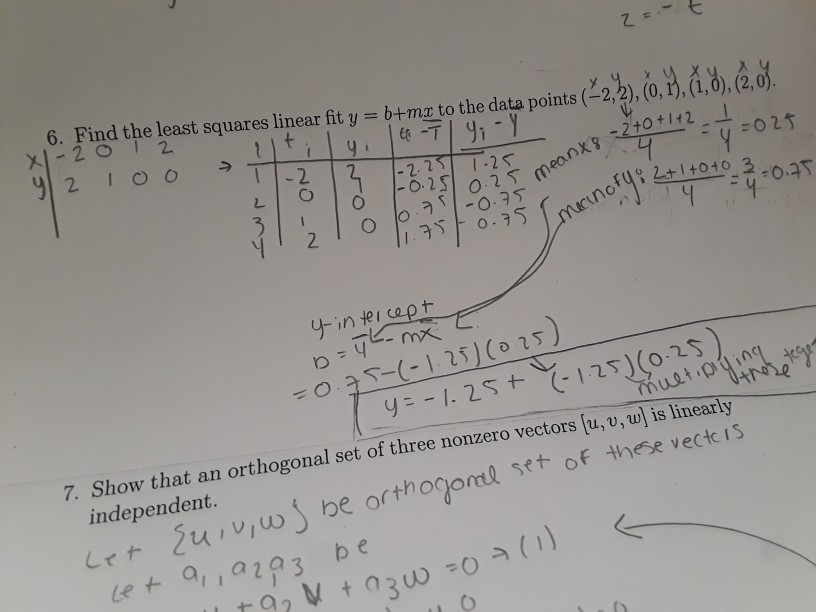 2 = - t
6. Find the least squares linear fit y = b+mx to the data points (-2, 2), (0, 1), (1, 0), (2, 0).
x y x y x y x y
x | -2 0 1 2
y | 2 1 0 0
→
i | t i | y i | ti - T | y i - Y
1 | -2 | 2 | -2.25 | 1.25
2 | 0 | 1 | -0.25 | 0.25
3 | 1 | 0 | 0.75 | -0.75
4 | 2 | 0 | 1.75 | -0.75
mean x: -2+0+1+2 / 4 = 1 / 4 = 0.25
mean of y: 2+1+0+0 / 4 = 3 / 4 = 0.75
y-intercept
b = y - mx
= 0.75-(-1.25)(0.25)
y = -1.25 + (-1.25)(0.25)
multiplying
these
7. Show that an orthogonal set of three nonzero vectors [u, v, w] is linearly
independent.
Let {u,v,w} be orthogonal set of these vectors
Let a1, a2 a3 be
+ a2 v + a3 w = 0 → (1)